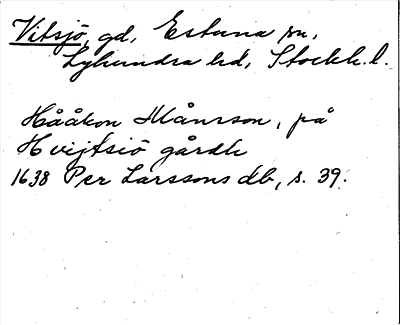 Vitsjö gd, Estuna sn,
Lyhundra hd, Stockh. l.
Hååkon Månsson, på
Hvijtsiö gårdh
1638 Per Larssons db, s. 39.